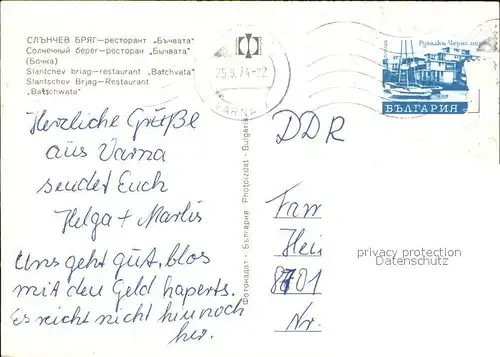 СЛЪНЧЕВ БРЯГ—ресторант „Бъчвата"
Солнечный берег—ресторан „Бычвата"
(Бочка)
Slantchev briag—restaurant "Batchvata"
Slantschev Brjag—Restaurant
„Batschwata"
25.9.74-22
VARNA
Русалка-Черно море
БЪЛГАРИЯ
Herzliche Grüße
aus Varna
sendet Euch
Helga + Marlis
Uns geht gut, blos
mit den Geld haperts.
Es reicht nicht hin noch
her.
Фотоиздат - България Photoizdat - Bulgaria
DDR
Fam
Hei
8701
Nr.
privacy protection
Datenschutz